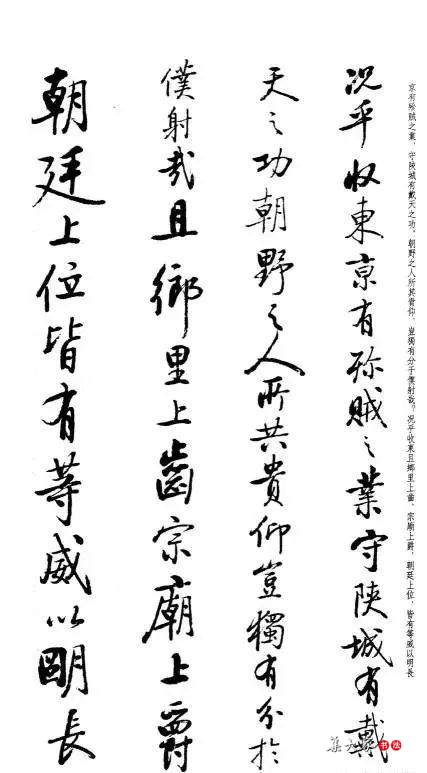 京有殄賊之業、守陝城有戴天之功、朝野之人所其貴仰、豈獨有分于僕射哉？況乎收東且鄉里上齒、宗廟上爵、朝廷上位、皆有等威以明長
況乎收東京有殄賊之業守陝城有戴
天之功朝野之人所共貴仰豈獨有分於
僕射哉且鄉里上齒宗廟上爵
朝廷上位皆有等威以明長
书法